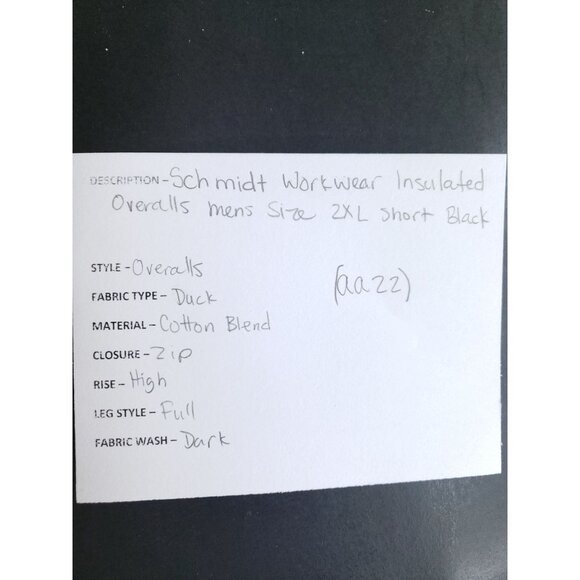 DESCRIPTION - Schmidt Workwear Insulated
Overalls mens Size 2XL short Black
STYLE - Overalls
(aa22)
FABRIC TYPE - Duck
MATERIAL - Cotton Blend
CLOSURE - Zip
RISE - High
LEG STYLE - Full
FABRIC WASH - Dark